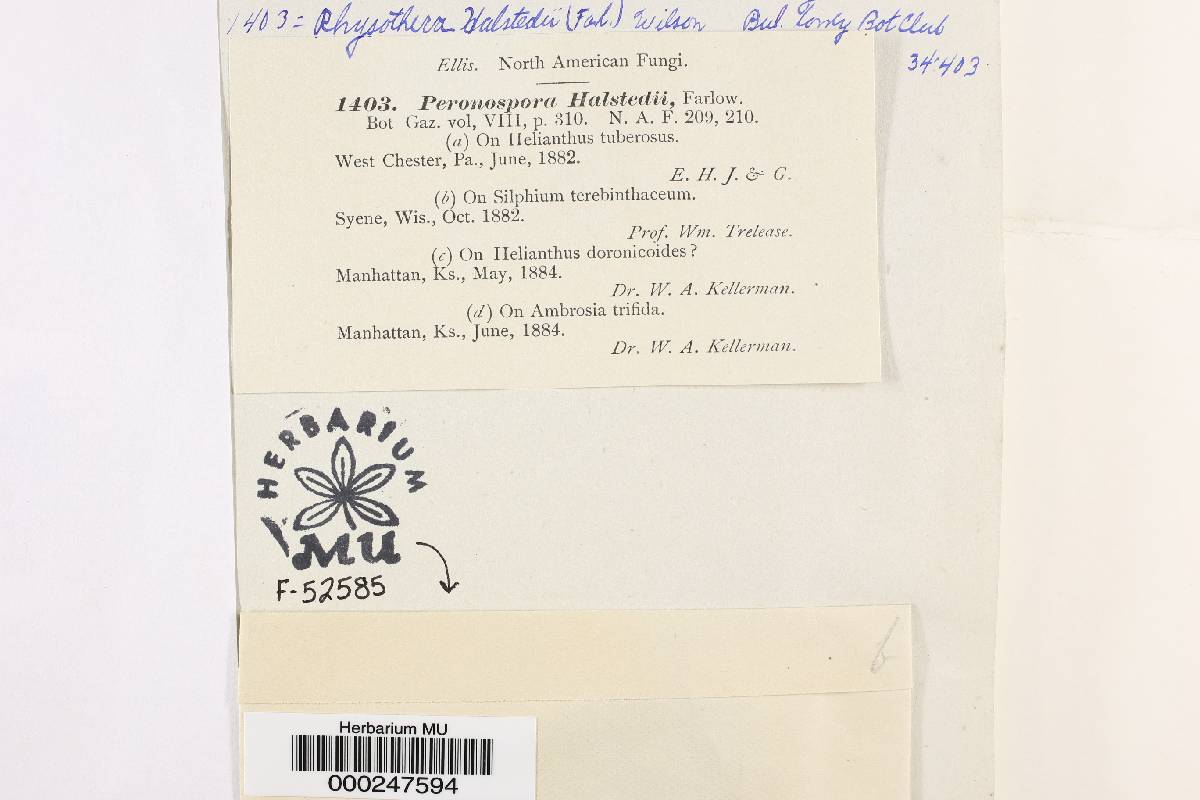 1403 = Rhysothera Halstedii (Fal.) Wilson Bul. Torrey Bot Club
34:403
Ellis. North American Fungi.
1403. Peronospora Halstedii, Farlow.
Bot Gaz. vol, VIII, p. 310. N. A. F. 209, 210.
(a) On Helianthus tuberosus.
West Chester, Pa., June, 1882.
E. H. J. & G.
(b) On Silphium terebinthaceum.
Syene, Wis., Oct. 1882.
Prof. Wm. Trelease.
(c) On Helianthus doronicoides?
Manhattan, Ks., May, 1884.
Dr. W. A. Kellerman.
(d) On Ambrosia trifida.
Manhattan, Ks., June, 1884.
Dr. W. A. Kellerman.
HERBARIUM
MU
F-52585
b
Herbarium MU
000247594